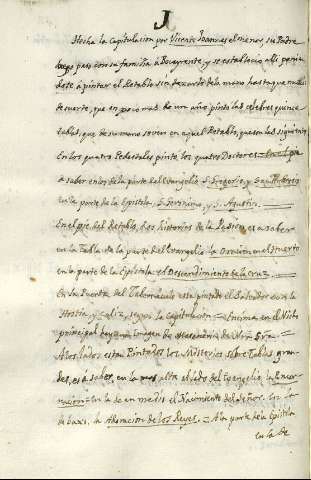 J
Hecha la Capitulacion por Vicente Joannes el menor, su Padre
luego paso con su familia à Bocayrente, y se establecio alli,
dose à pintar el Retablo sin dexarlo de la mano hasta que
de suerte, que en poco mas de un año pintò las celebres quince
tablas, que de su mano se ven en aquel Retablo, que son las siguientes
En los quatro Pedestales pintò los quatro Doctores
a saber en los de la parte del Evangelio S. Gregorio, y San Ambrosio
en la parte de la Epistola S. Geronimo, y S. Agustin.
En el pie del Retablo, dos historias de la Pasion, es a saber
en la Tabla de la parte del Evangelio la Oracion en el Huerto
en la parte de la Epistola el Descendimiento de la Cruz.
En la Puerta del Tabernaculo esta pintado el Salvador con la
Hostia y Caliz, segun la Capitulacion = Encima en el Nicho
principal hay una Imagen de de Ntra Sra
A los lados estan Pintados los Misterios sobre Tablas gran-
des, es à saber, en la mas alta al lado del Evangelio, la Encar-
nacion = En la de en medio el Nacimiento del Señor. En la
de baxo, la Adoracion de los Reyes. = A la parte de la Epistola
en la de